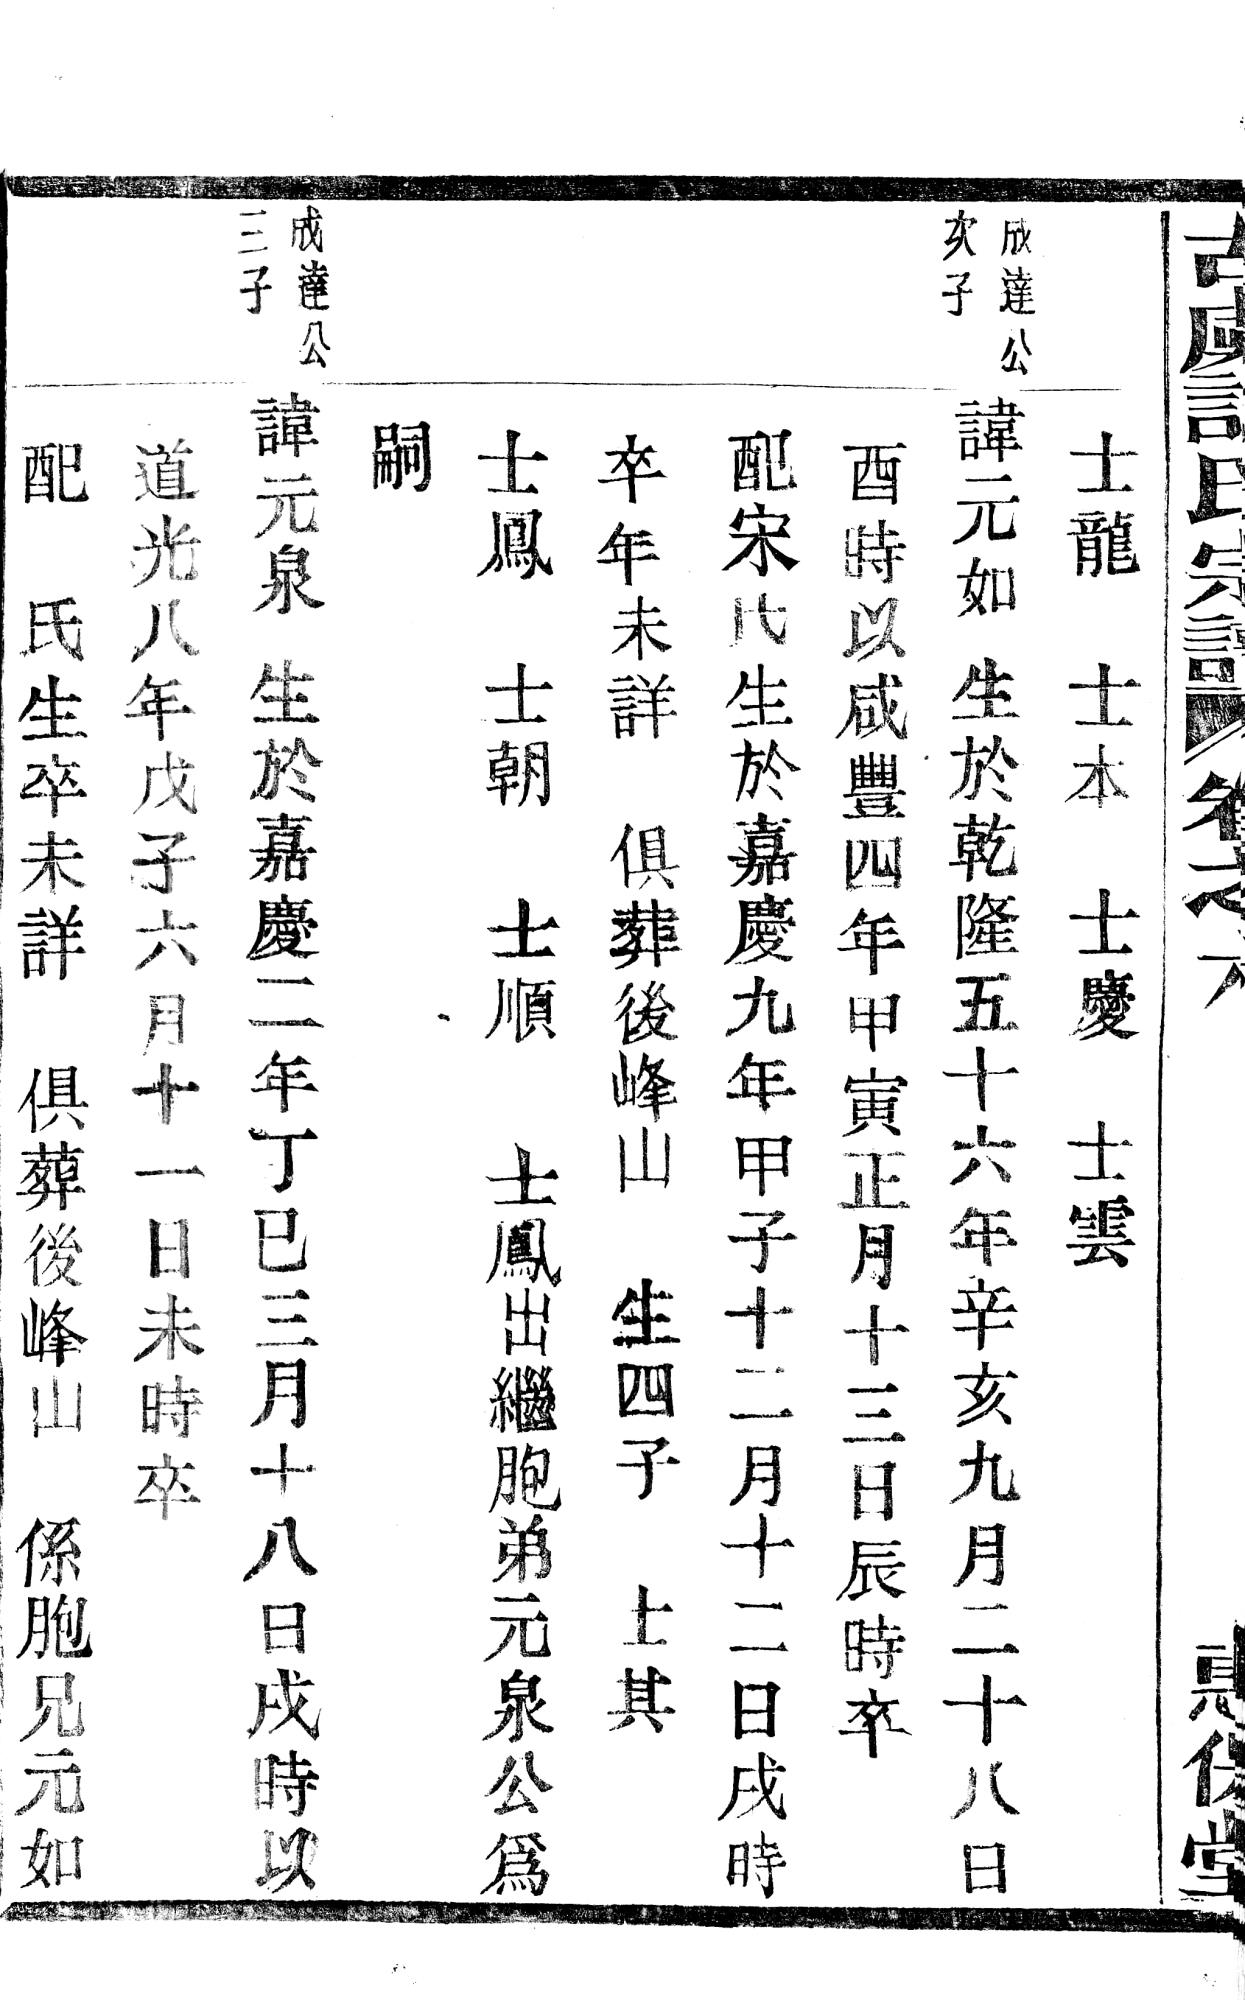 氏宗譜 卷之六
堂
士龍 士本 士慶 士雲
成達公
次子
諱元如 生於乾隆五十六年辛亥九月二十八日
酉時以咸豐四年甲寅正月十三日辰時卒
配宋氏生於嘉慶九年甲子十二月十二日戌時
卒年未詳 俱葬後峰山 生四子 士其
士鳳 士朝 士順 士鳳出繼胞弟元泉公爲
嗣
成達公
三子
諱元泉 生於嘉慶二年丁巳三月十八日戌時以
道光八年戊子六月十一日未時卒
配 氏生卒未詳 俱葬後峰山 係胞兄元如